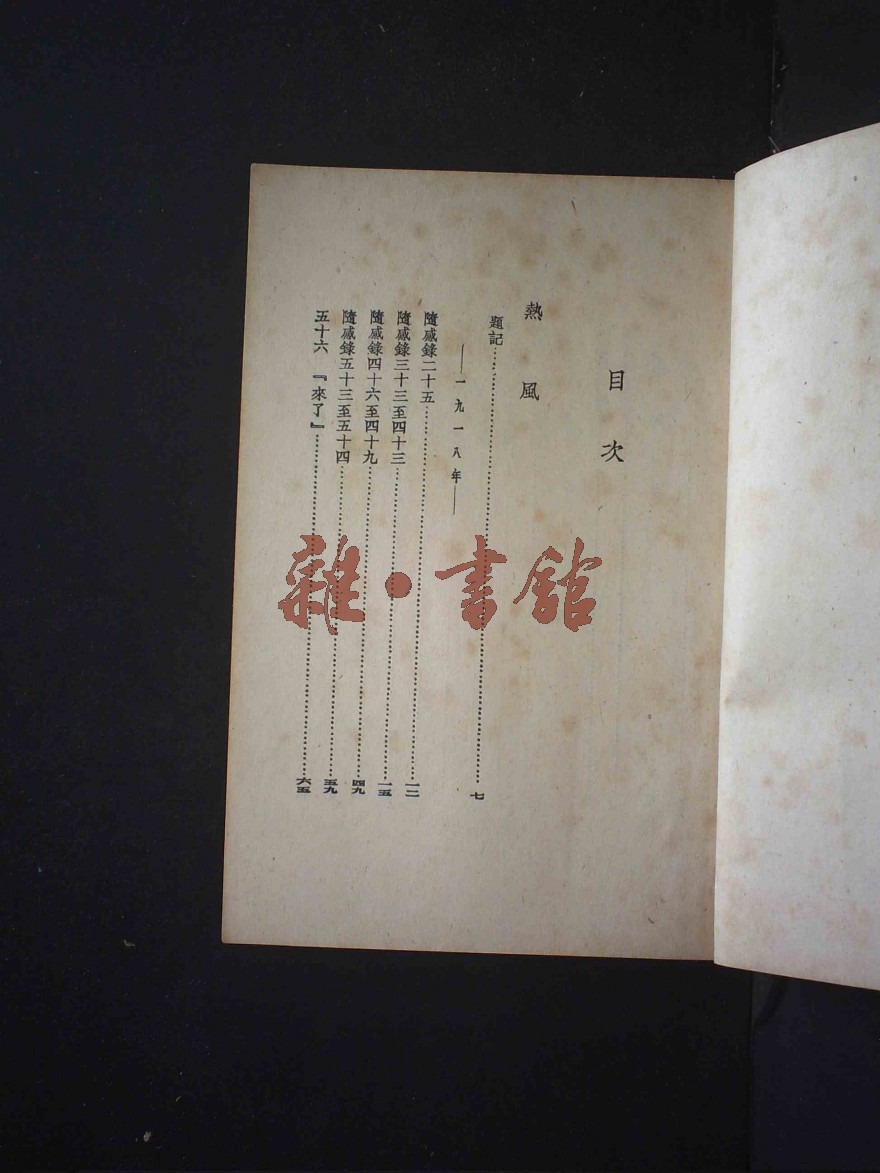 目次
熱風
題記……七
——一九一八年——
隨感錄二十五……一二
隨感錄三十三至四十三……一五
隨感錄四十六至四十九……四九
隨感錄五十三至五十四……五九
五十六 『來了』……六五
雜·書館